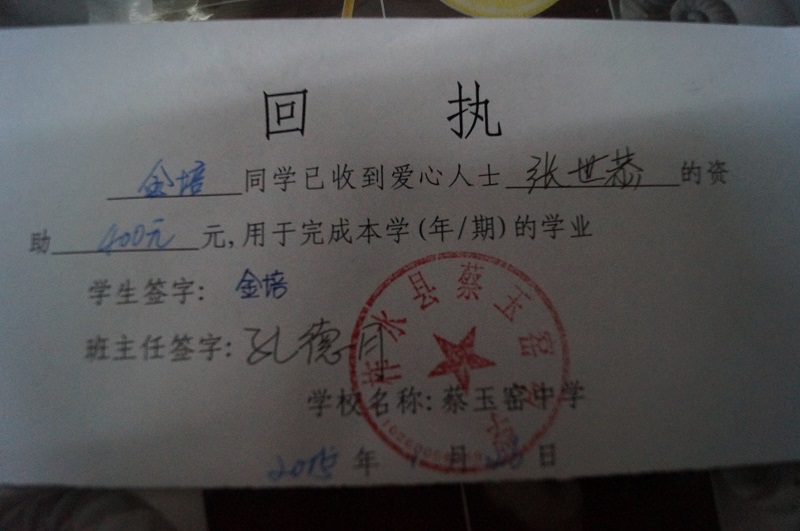 回 执
金培 同学已收到爱心人士 张世恭 的资
助 400元 元,用于完成本学(年/期)的学业
学生签字: 金培
班主任签字: 孔德月
学校名称: 蔡玉窑中学
2015 年 1 月 日
柞水县蔡玉窑